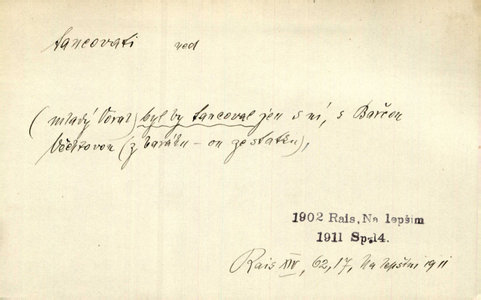 tancovati ned
(mladý Voral) byl by tancoval jen s ní, s Barčou
(z baráku – on ze statku),
1902 Rais, Na lepším
1911 Sp.14.
Rais XIV, 62, 17, Na lepším 1911